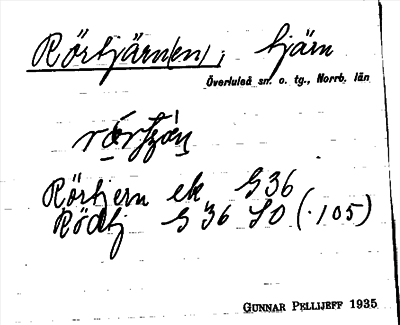 Rörtjärn(en), tjärn
Överluleå sn. o. tg., Norrb. län
Rörtjern ek. G36
Rödtj G36 SO (.105)
GUNNAR PELLIJEFF 1935